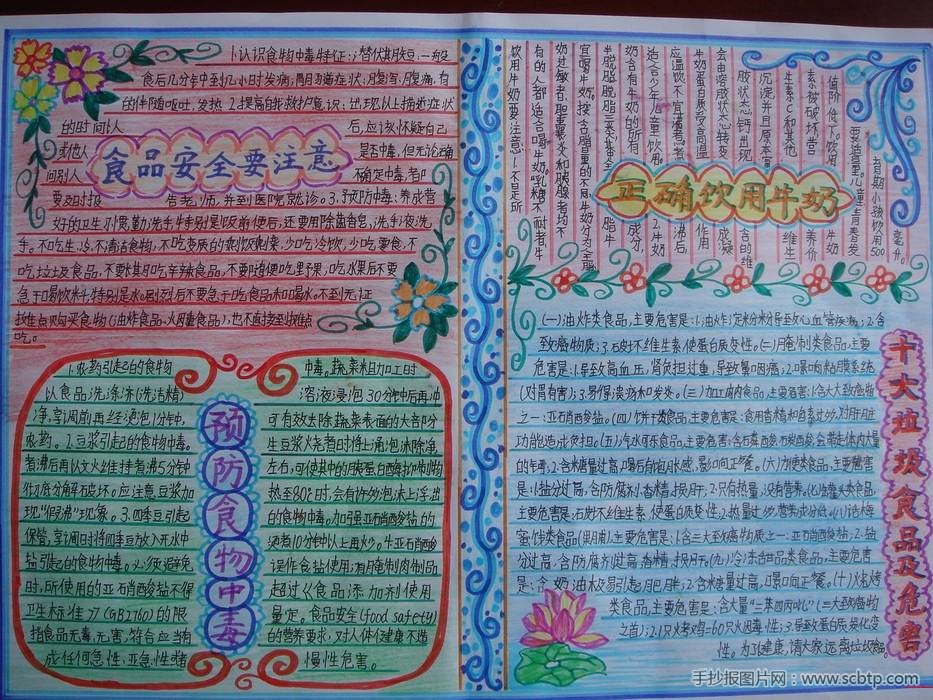 1.认识食物中毒特征:潜伏期短:一般
食后几分钟至几小时发病;胃肠道症状:腹泻、腹痛,有
的伴随呕吐,发热。2.提高自我救护意识:出现以上描述症状
的时间认 后,应该怀疑自己
或他人 是否中毒,但无论确
食品安全要注意
问别人 不确定中毒,老
要及时报 告老师,并到医院就诊。3.预防中毒:养成营
好的卫生小惯勤洗手特别是饭前便后,还要用除菌香皂,洗手液洗
手。不吃生、冷、不清洁食物,不吃变质的剩饭剩菜,少吃冷饮,少吃零食,不
吃垃圾食品,不要长期吃辛辣食品,不要随便吃野果,吃水果后不要
急于喝饮料特别是水。剧烈后不要急于吃食品和喝水。不到无证
吃。
1.农药引起的食物
以食品洗涤济(洗洁精)
净,烹调前再经浸泡1分钟,
农药。2.豆浆引起的食物中毒。
者沸后再以文火维持者沸5分钟
做才底分解石破坏。应注意豆浆加
现"假沸"现象。3.四季豆引起
保管,烹调时将四季豆放入开水中
盐引起的食物中毒。必须避免
时,所使用的亚石肖酸盐不得
卫生标准>>(GB2760)的限
指食品无毒、无害,符合应当有
成任何急性、亚急性猪
预防食物中毒
中毒,蔬菜粗加工时
溶液浸泡30分钟后再冲
可有效去除蔬菜表面的大音阝分
生豆浆火烧者时将上涌泡沫除净,
热至80℃时,会有许多泡沫上浮,出
的食物中毒。加强亚石肖酸盐的
烫者10分钟以上再炒。4.亚石肖酸
误作食盐使用;有月奄制肉制品
超过《食品添加剂使用
量定。食品安全(food safety)
的营养要求,对人体健康不造
慢性危害。
正确饮用牛奶
饮用牛奶要注意:1.不是所
有的人都适合喝牛奶。乳糖不耐者牛
奶过敏者,胆囊炎和胰腺者均不
宜喝牛奶。按含脂量的不同牛奶分为全脂
半脱脂脱脂三类。
奶含有牛奶的所有 成分,
适合少年儿童饮用。 2.牛奶
应温饮不宜 者沸后
牛奶蛋白质受高温 作用
会由溶胶状态转变 成凝
胶状态,钙出现
沉淀并且原本 含的维
生素C和其他 维生
素被破坏,营 养价
值降低。3.饮用 牛奶
要适量。儿童青春发
育期小孩饮用500
毫升。
(一)油炸类食品,主要危害是:1.油炸淀粉导致心血管疾病;2.含
致癌物质;3.破坏维生素,使蛋白质变性。(二)月奄制类食品,主要
危害是:1.导致高血压,肾负担过重,导致鼻咽癌;2.影响粘膜系统
(对胃有害);3.易得溃疡和发炎。(三)加工肉食品,主要危害:1.含大致癌物
之一:亚石肖酸盐。(四)饼干类食品,主要危害是:食用香精和色素过多,对肝脏
功能造成负担。(五)汽水可乐食品,主要危害;含石粦酸、石炭酸,会带走体内大量
的钙;2.含水糖量过高,喝后有饱胀感,影响正餐。(六)方便类食品,主要危害
是:1.盐分过高,含防腐剂、香精,损月干;2.只有热量,没有营养。(七)罐头类食品,
主要危害是:1.破坏维生素,使蛋白质变性;2.热量过多,营养成份低。(八)话梅
蜜饯类食品(果脯),主要危害是:1.含三大致癌物质之一:亚石肖酸盐;2.盐
分过高,含防腐剂过高、香精,损月干。(九)冷冻甜品类食品,主要危害
是:含奶油极易引起月巴月半;2.含水糖量过高,影响正餐。(十)烧烤
类食品,主要危害是:含大量"三苯四丙吡"(三大致癌物
之首);2.1只火考鸡=60只火因毒性;3.导致蛋白质炭化变
性。为了健康,请大家远离垃圾食品。
十大垃圾食品及危害
手抄报图片网:www.scbtp.com